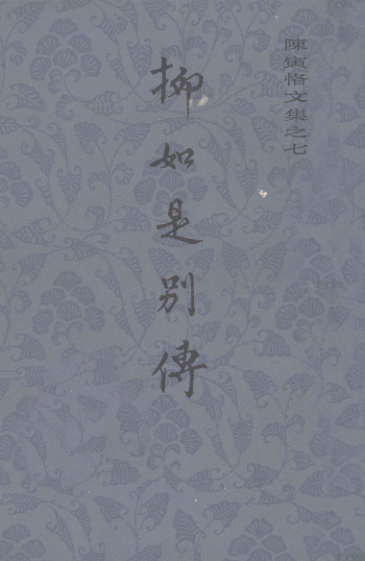 陳寅恪文集之七
柳如是別傳